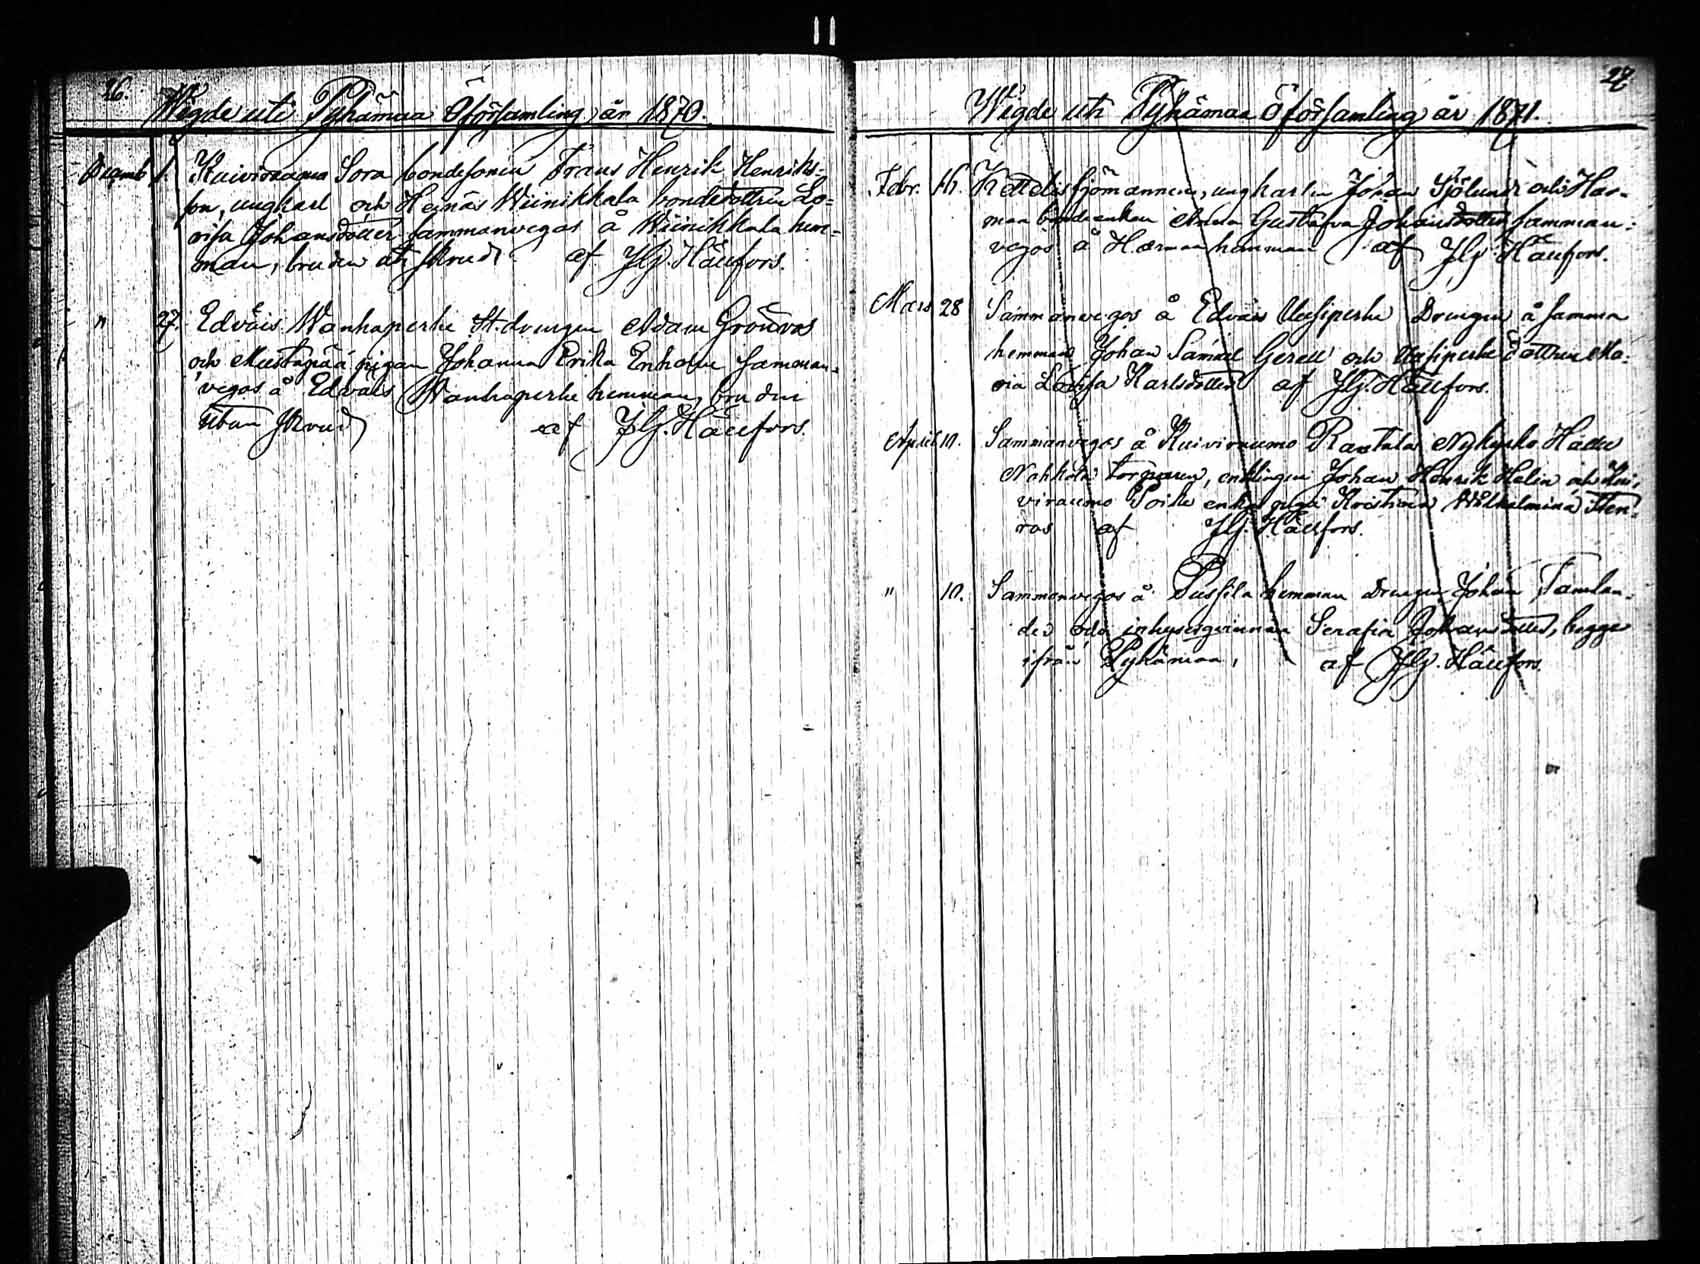 11
26.
Wigde uti Pyhämaa Öförsamling år 1870.
Decemb 1. Kuivirauma Sora bondesonen Frans Henrik Henriks-
son, ungkarl och Heinäs Wiinikkala bondedottren Lo-
visa Johansdotter sammanvegos å Wiinikkala hem-
man, bruden uti skrud. af JG. Häufors.
" 27. Edväis Wanhaperhe St. drengen Adam Grönroos
och Mustapää pigan Johanna Erika Enholm samman-
vegos å Edväis Wanhaperhe hemman, bruden
utan skrud af JG. Häufors.
27
Wigde uti Pyhämaa Öförsamling år 1871.
Febr. 16. Kettelis sjömannen, ungkarlen Johan Sjölund och Har-
maa bondeenkan Anna Gustafva Johansdotter samman-
vegos å Harmaa hemman af JG. Häufors.
Mars 28 Sammanvegos å Edväis Uusiperhe Drengen å samma
hemman Johan Samuel Gerell och Uusiperhe dottren Ma-
ria Lovisa Karlsdotter af JG. Häufors.
April 10. Sammanvegos å Kuivirauma Rantala
torparen, enklingen Johan Henrik Helin och Kui-
virauma enka pigä Kristina Wilhelmina Sten-
ros af JG. Häufors.
" 10. Sammanvegos å Pussila hemman Drengen Johan Tamlan-
der och inhysesqvinnan Serafia Johansdotter, begge
ifrån Pyhämaa, af JG. Häufors.